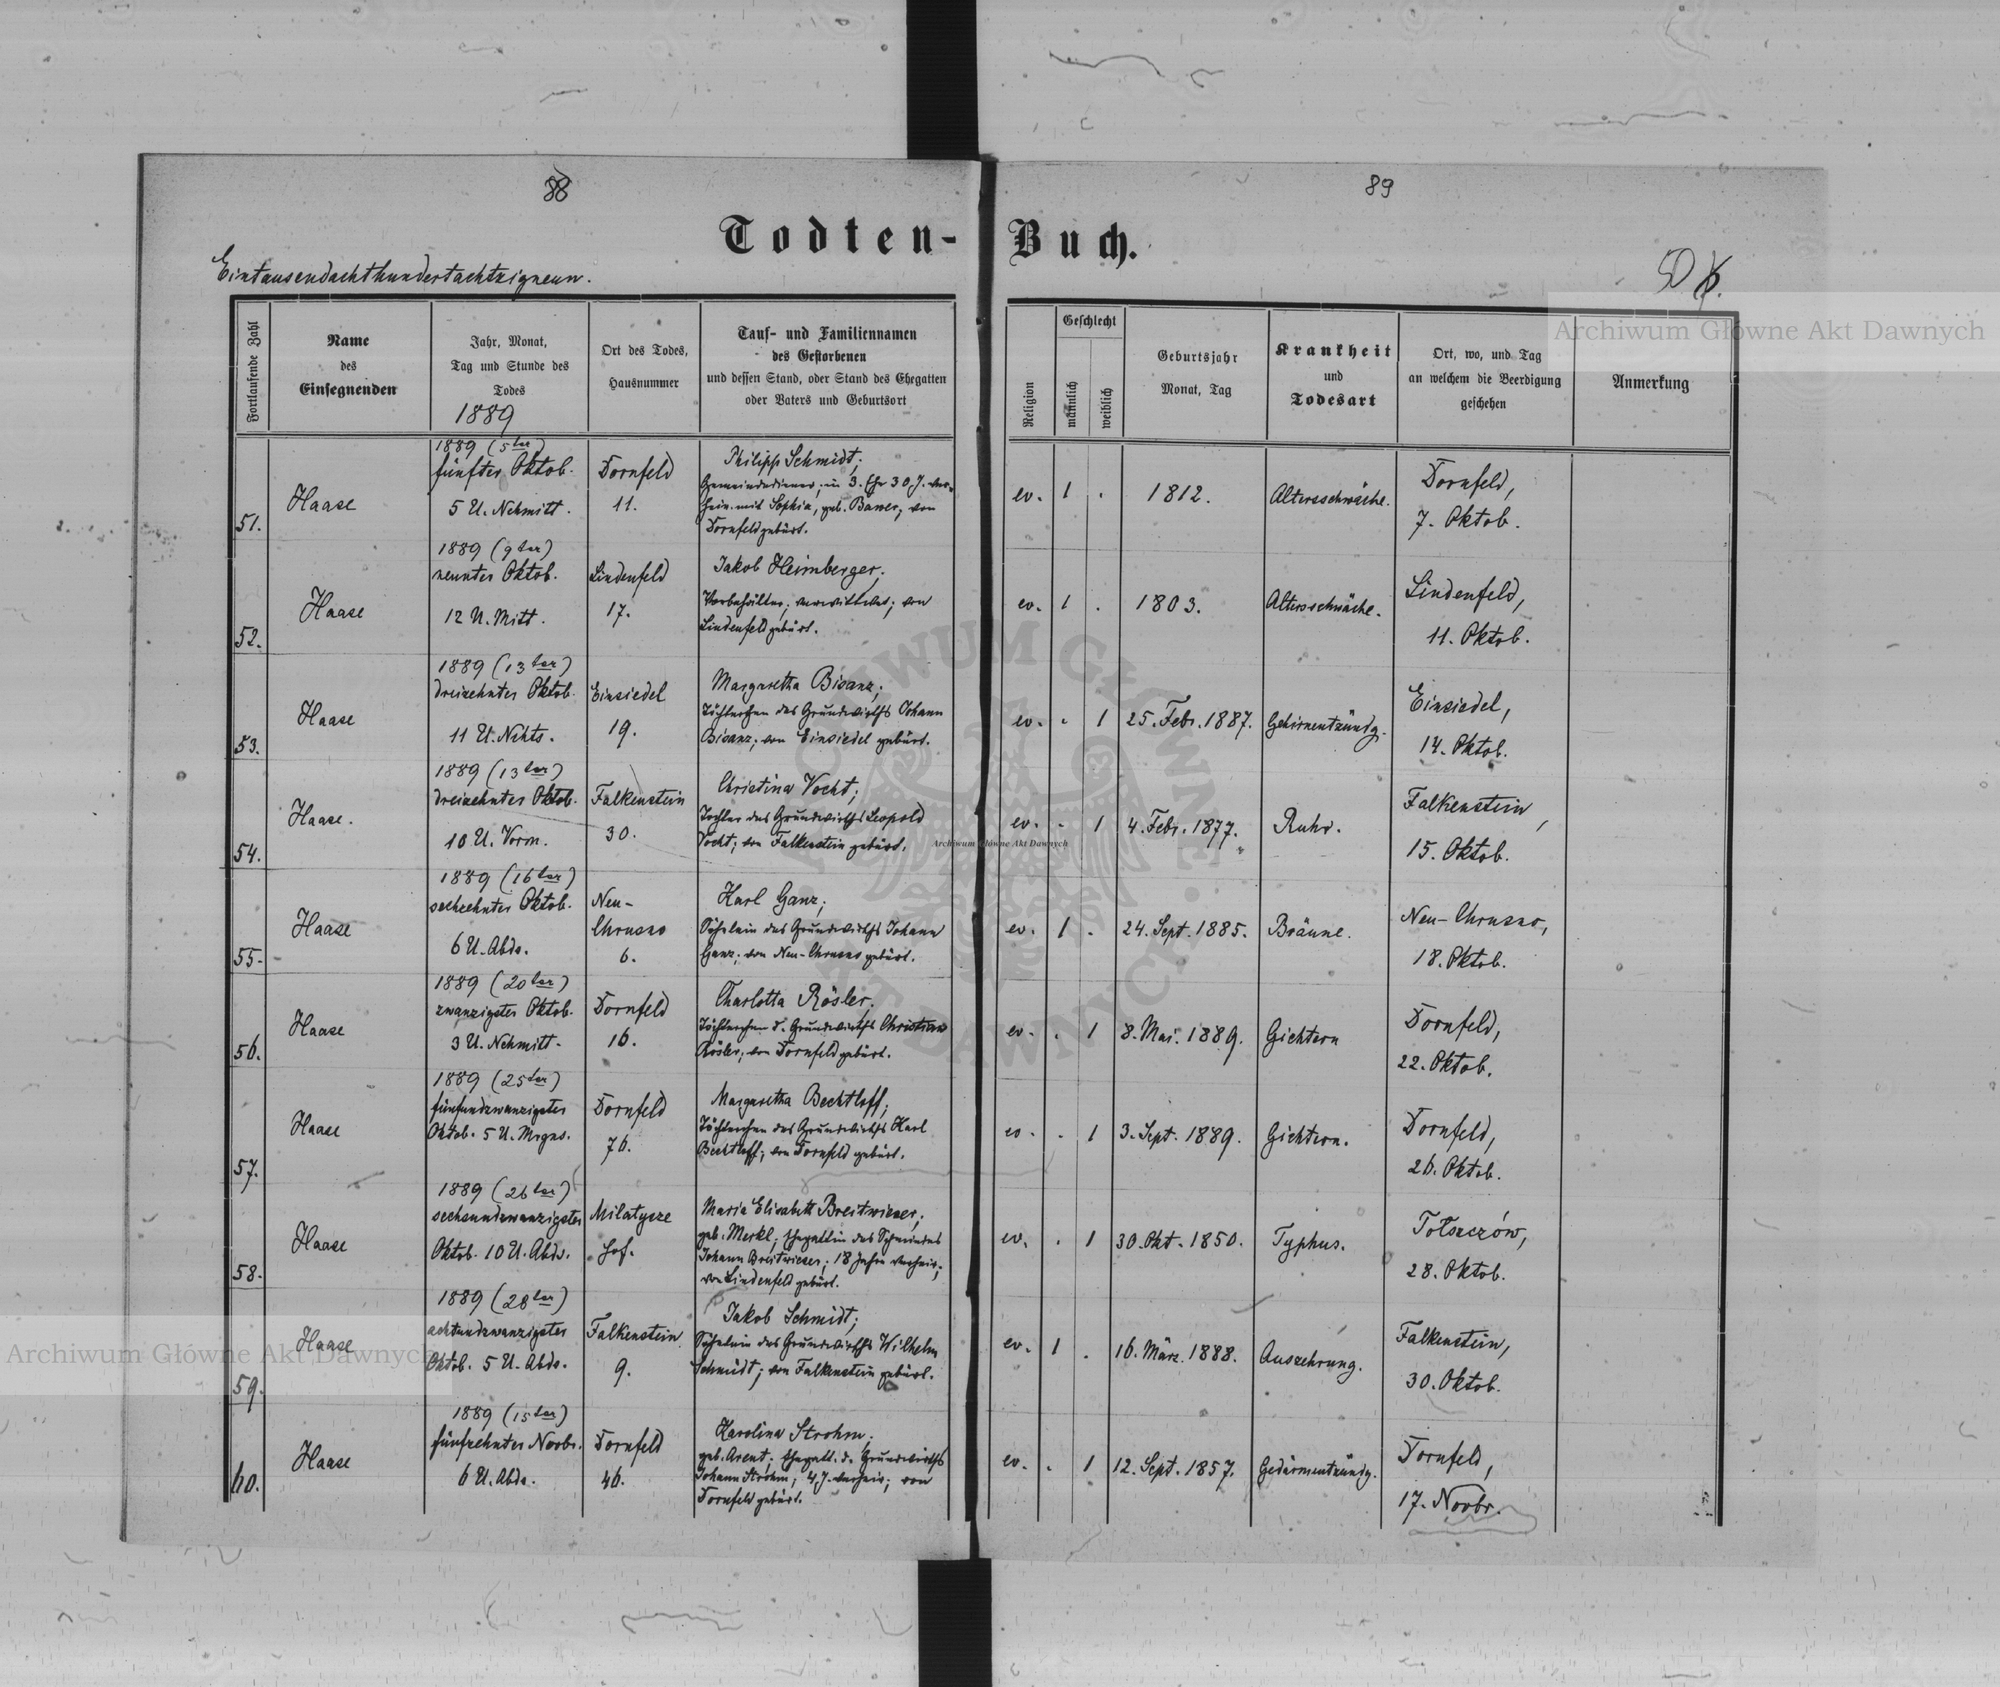 88
89
Todten-Buch.
Eintausendachthundertachtzigneun.
50
Archiwum Główne Akt Dawnych
Fortlaufende Zahl
Name
des
Einsegnenden
Jahr, Monat,
Tag und Stunde des
Todes
1889
Ort des Todes,
Hausnummer
Tauf- und Familiennamen
des Gestorbenen
und dessen Stand, oder Stand des Ehegatten
oder Vaters und Geburtsort
Religion
Geschlecht
männlich
weiblich
Geburtsjahr
Monat, Tag
Krankheit
und
Todesart
Ort, wo, und Tag
an welchem die Beerdigung
geschehen
Anmerkung
51.
Haase
1889 (5ter)
fünfter Oktob.
5 U. Nchmitt.
Dornfeld
11.
Philipp Schmidt;
Gemeindediener, in 3. Ehe 30 J. ver-
heir. mit Sophia, geb. Bauer; von
Dornfeld gebürt.
ev. 1 .
1812.
Altersschwäche.
Dornfeld,
7. Oktob.
52.
Haase
1889 (9ter)
neunter Oktob.
12 U. Mitt.
Lindenfeld
17.
Jakob Heimberger;
Vorbehälter; verwittwet; von
Lindenfeld gebürt.
ev. 1 .
1803.
Altersschwäche.
Lindenfeld,
11. Oktob.
53.
Haase
1889 (13ter)
dreizehnter Oktob.
11 U. Nchts.
Einsiedel
19.
Margaretha Bisanz;
Töchterchen des Grundwirths Johann
Bisanz; von Einsiedel gebürt.
ev. . 1
25. Febr. 1887.
Gehirnentzündg.
Einsiedel,
14. Oktob.
54.
Haase.
1889 (13ter)
dreizehnter Oktob.
10 U. Vorm.
Falkenstein
30.
Christina Vocht;
Tochter des Grundwirths Leopold
Vocht; von Falkenstein gebürt.
ev. . 1
4. Febr. 1877.
Ruhr.
Falkenstein,
15. Oktob.
55.
Haase
1889 (16ter)
sechzehnter Oktob.
6 U. Abds.
Neu-
Chrusno
6.
Karl Ganz;
Söhnlein des Grundwirths Johann
Ganz; von Neu-Chrusno gebürt.
ev. 1 .
24. Sept. 1885.
Bräune.
Neu-Chrusno,
18. Oktob.
56.
Haase
1889 (20ter)
zwanzigster Oktob.
3 U. Nchmitt.
Dornfeld
16.
Charlotta Rösler;
Töchterchen d. Grundwirths Christian
Rösler; von Dornfeld gebürt.
ev. . 1
8. Mai. 1889.
Gichtern
Dornfeld,
22. Oktob.
57.
Haase
1889 (25ter)
fünfundzwanzigster
Oktob. 5 U. Mrgns.
Dornfeld
76.
Margaretha Bechtloff;
Töchterchen des Grundwirths Karl
Bechtloff; von Dornfeld gebürt.
ev. . 1
3. Sept. 1889.
Gichtern.
Dornfeld,
26. Oktob.
58.
Haase
1889 (26ter)
sechsundzwanzigster
Oktob. 10 U. Abds.
Milatycze
Hof.
Maria Elisabeth Breitwieser;
geb. Merkl; Ehegattin des
Johann Breitwieser; 18 Jahre verheir.;
von Lindenfeld gebürt.
ev. . 1
30. Okt. 1850.
Typhus.
Tołszczów,
28. Oktob.
59.
Haase
1889 (28ter)
achtundzwanzigster
Oktob. 5 U. Abds.
Falkenstein
9.
Jakob Schmidt;
Söhnlein des Grundwirths Wilhelm
Schmidt; von Falkenstein gebürt.
ev. 1 .
16. März. 1888.
Auszehrung.
Falkenstein,
30. Oktob.
60.
Haase
1889 (15ter)
fünfzehnter Novbr.
6 U. Abds.
Dornfeld
46.
Karolina Strohm;
geb. Arent; Ehegatt. d. Grundwirths
Johann Strohm; 4 J. verheir; von
Dornfeld gebürt.
ev. . 1
12. Sept. 1857.
Gedärmentzündg.
Dornfeld,
17. Novbr.
Archiwum Główne Akt Dawnych
Archiwum Główne Akt Dawnych